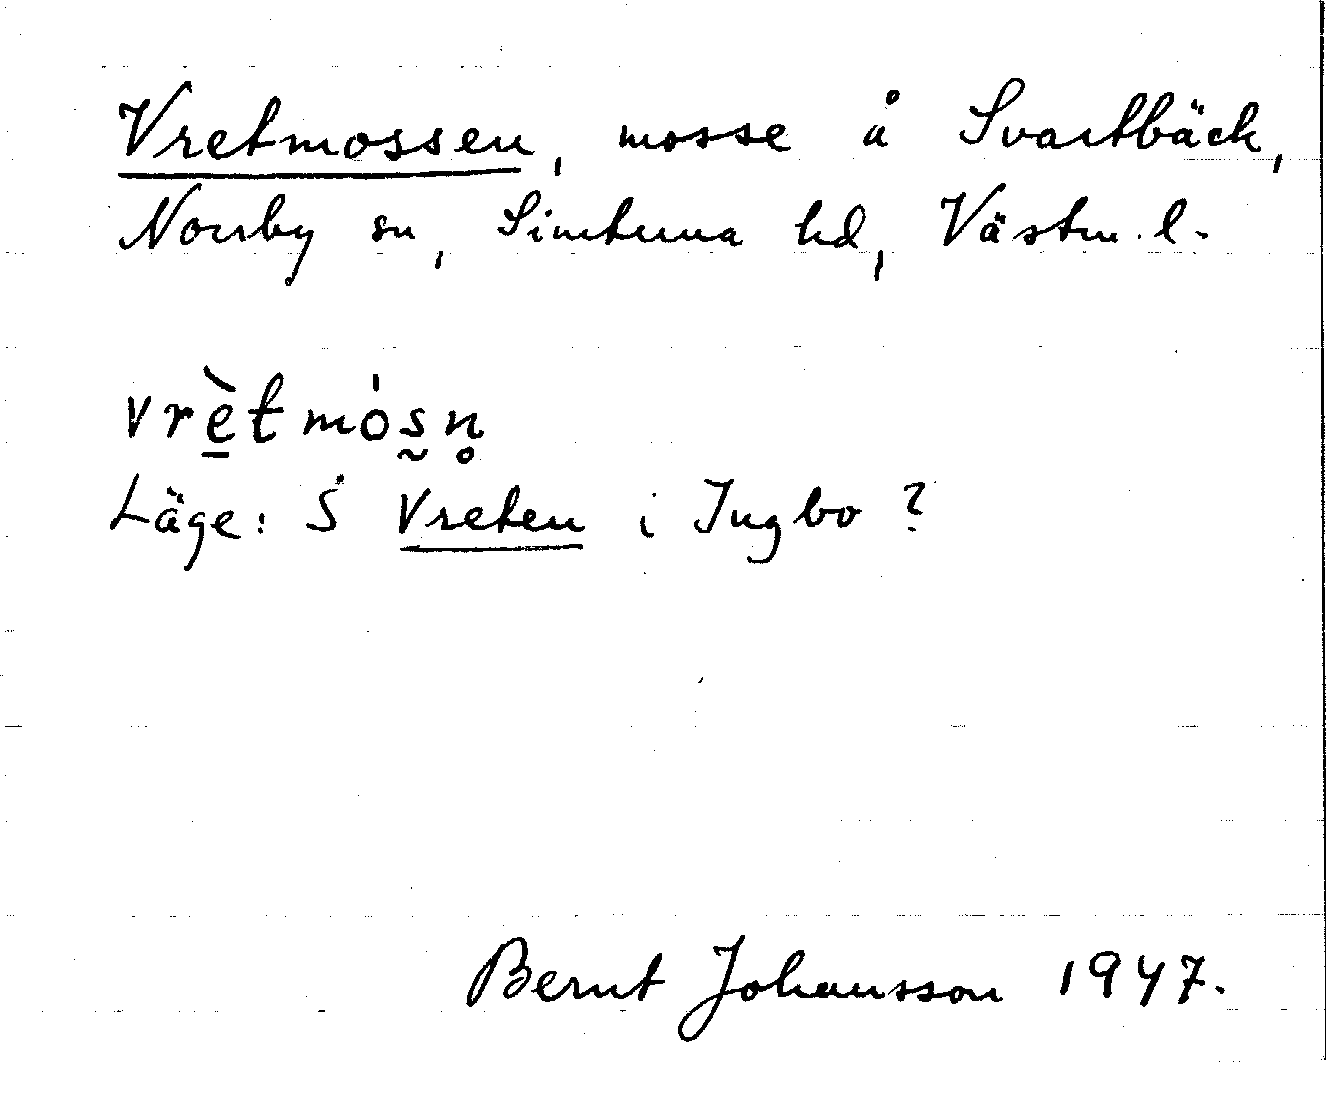 Vretmossen, mosse å Svartbäck,
Norrby sn, Simtuna hd, Västm. l.
vrè̠tmós̰n̥
Läge: S Vreten i Ingbo?
Bernt Johansson 1947.